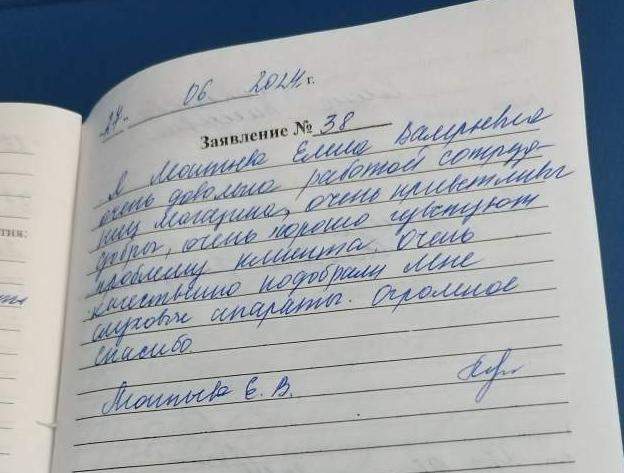 27. 06 2024 г.
Заявление № 38
Я Елена Валерьевна
очень довольна работой сотруд-
ниц магазина, очень приветливы
добры, очень хорошо чувствуют
проблему клиента, очень
качественно подобрали мне
слуховые апараты. Огромное
спасибо
Е. В.
тия: